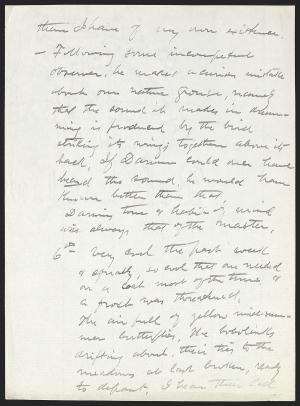 than I have of my own existence.
— Following some incompetent
observer, he makes a curious mistake
about our native grouse, namely
that the sound it makes in drum-
ming is produced by the bird
striking its wings together above its
back. If Darwin could ever have
heard this sound, he would have
known better than that
Darwin's tone & habit of mind
was always that of the master.
6th Very cool the past week
especially, so cool that one needed
on a coat most of the time &
a frost was threatened.
The air full of yellow mid-sum-
mer butterflies, the bobolinks
drifting about, their ties to the
meadows at last broken, ready
to depart. I hear their call